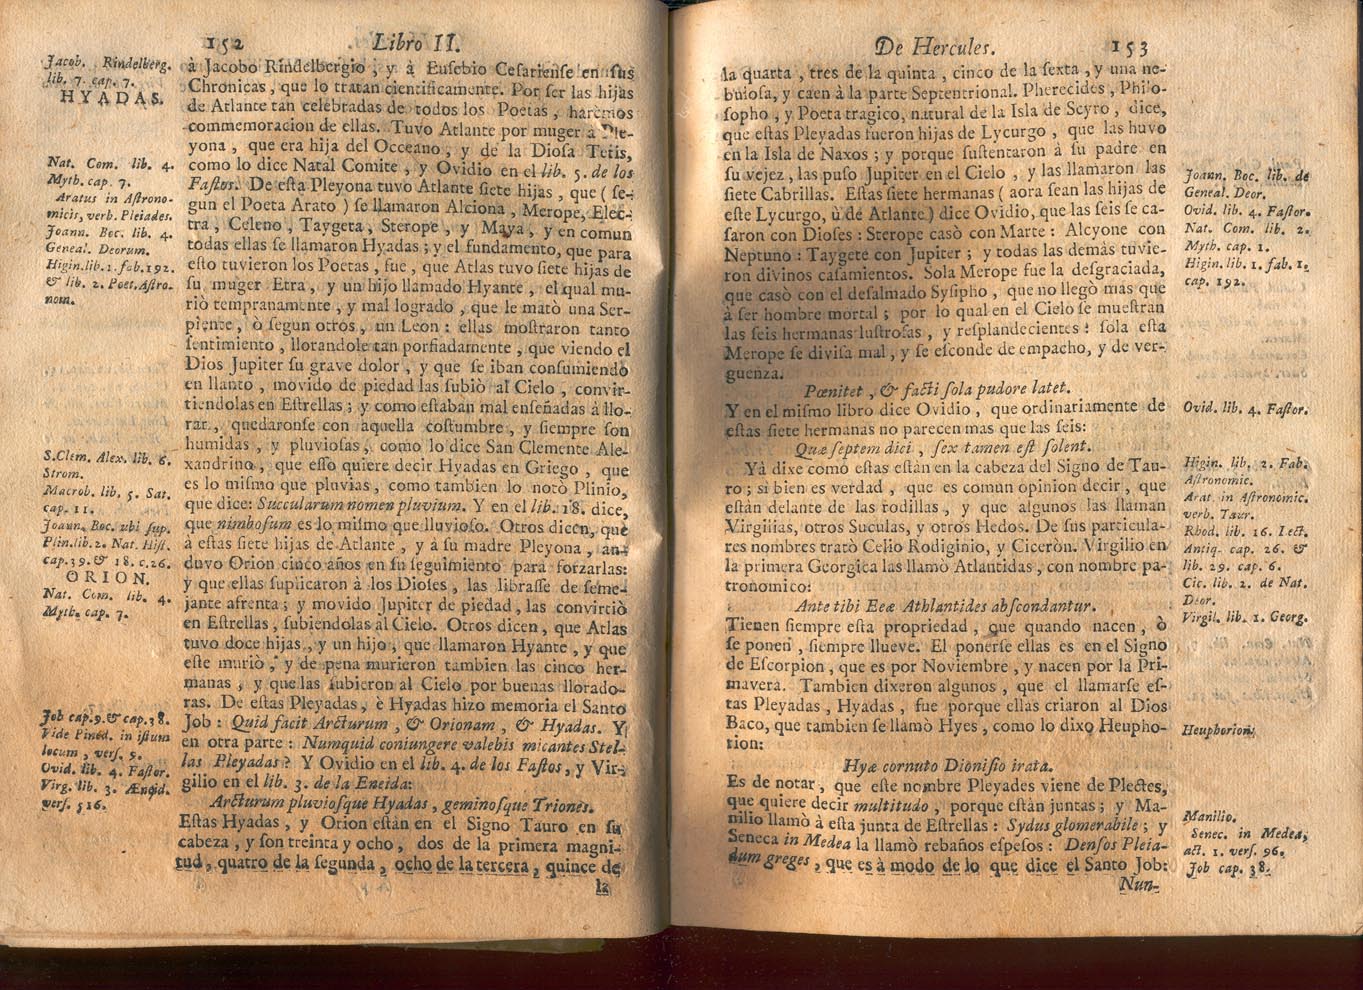 152 Libro II.
Jacob. Rindelberg.
lib. 7. cap. 7.
HYADAS.
Nat. Com. lib. 4.
Myth. cap. 7.
Aratus in Aſtrono-
micis, verb. Pleiades.
Joann. Boc. lib. 4.
Geneal. Deorum.
Higin. lib. 1. fab. 192.
& lib. 2. Poet. Aſtro-
nom.
S. Clem. Alex. lib. 6.
Strom.
Macrob. lib. 5. Sat.
cap. 11.
Joann. Boc. ubi ſup.
Plin. lib. 2. Nat. Hiſt.
cap. 39. & 18. c. 26.
ORION.
Nat. Com. lib. 4.
Myth. cap. 7.
Job cap. 9. & cap. 38.
Vide Pined. in iſtum
locum, verſ. 9.
Ovid. lib. 4. Faſtor.
Virg. lib. 3. Æneid.
verſ. 516.
à Jacobo Rindelbergio, y à Euſebio Ceſarienſe en ſus
Chronicas, que lo tratan cientificamente. Por ſer las hijas
de Atlante tan celebradas de todos los Poetas, harèmos
commemoracion de ellas. Tuvo Atlante por muger à Ple-
yona, que era hija del Occeano, y de la Dioſa Tetis,
como lo dice Natal Comite, y Ovidio en el lib. 5. de los
Faſtos. De eſta Pleyona tuvo Atlante ſiete hijas, que (ſe-
gun el Poeta Arato) ſe llamaron Alciona, Merope, Elec-
tra, Celeno, Taygeta, Sterope, y Maya, y en comun
todas ellas ſe llamaron Hyadas; y el fundamento, que para
eſto tuvieron los Poetas, fue, que Atlas tuvo ſiete hijas de
ſu muger Etra, y un hijo llamado Hyante, el qual mu-
riò tempranamente, y mal logrado, que le matò una Ser-
piente, ò ſegun otros, un Leon: ellas moſtraron tanto
ſentimiento, llorandole tan porfiadamente, que viendo el
Dios Jupiter ſu grave dolor, y que ſe iban conſumiendo
en llanto, movido de piedad las ſubiò al Cielo, convir-
tiendolas en Eſtrellas; y como eſtaban mal enſeñadas à llo-
rar, quedaronſe con aquella coſtumbre, y ſiempre ſon
humidas, y pluvioſas, como lo dice San Clemente Ale-
xandrino, que eſſo quiere decir Hyadas en Griego, que
es lo miſmo que pluvias, como tambien lo notò Plinio,
que dice: Succularum nomen pluvium. Y en el lib. 18. dice,
que nimboſum es lo miſmo que lluvioſo. Otros dicen, què
à eſtas ſiete hijas de Atlante, y à ſu madre Pleyona, an-
duvo Orion cinco años en ſu ſeguimiento para forzarlas:
y que ellas ſuplicaron à los Dioſes, las libraſſe de ſeme-
jante afrenta; y movido Jupiter de piedad, las convirtiò
en Eſtrellas, ſubiendolas al Cielo. Otros dicen, que Atlas
tuvo doce hijas, y un hijo, que llamaron Hyante, y que
eſte muriò, y de pena murieron tambien las cinco her-
manas, y que las ſubieron al Cielo por buenas llorado-
ras. De eſtas Pleyadas, è Hyadas hizo memoria el Santo
Job: Quid facit Arcturum, & Orionam, & Hyadas. Y
en otra parte: Numquid coniungere valebis micantes Stel-
las Pleyadas? Y Ovidio en el lib. 4. de los Faſtos, y Vir-
gilio en el lib. 3. de la Eneida:
Arcturum pluvioſque Hyadas, geminoſque Triones.
Eſtas Hyadas, y Orion eſtàn en el Signo Tauro en ſu
cabeza, y ſon treinta y ocho, dos de la primera magni-
tud, quatro de la ſegunda, ocho de la tercera, quince de
la
De Hercules. 153
la quarta, tres de la quinta, cinco de la ſexta, y una ne-
buloſa, y caen à la parte Septentrional. Pherecides, Philo-
ſopho, y Poeta tragico, natural de la Isla de Scyro, dice,
que eſtas Pleyadas fueron hijas de Lycurgo, que las huvo
en la Isla de Naxos; y porque ſuſtentaron à ſu padre en
ſu vejez, las puſo Jupiter en el Cielo, y las llamaron las
ſiete Cabrillas. Eſtas ſiete hermanas (aora ſean las hijas de
eſte Lycurgo, ù de Atlante) dice Ovidio, que las ſeis ſe ca-
ſaron con Dioſes: Sterope casò con Marte: Alcyone con
Neptuno: Taygete con Jupiter; y todas las demàs tuvie-
ron divinos caſamientos. Sola Merope fue la deſgraciada,
que casò con el deſalmado Syſipho, que no llegò mas que
à ſer hombre mortal; por lo qual en el Cielo ſe mueſtran
las ſeis hermanas luſtroſas, y reſplandecientes: ſola eſta
Merope ſe diviſa mal, y ſe eſconde de empacho, y de ver-
guenza.
Pœnitet, & facti ſola pudore latet.
Y en el miſmo libro dice Ovidio, que ordinariamente de
eſtas ſiete hermanas no parecen mas que las ſeis:
Quæ ſeptem dici, ſex tamen eſt ſolent.
Yà dixe como eſtas eſtàn en la cabeza del Signo de Tau-
ro; ſi bien es verdad, que es comun opinion decir, que
eſtàn delante de las rodillas, y que algunos las llaman
Virgilias, otros Suculas, y otros Hedos. De ſus particula-
res nombres tratò Celio Rodiginio, y Ciceròn. Virgilio en
la primera Georgica las llamò Atlantidas, con nombre pa-
tronomico:
Ante tibi Eeæ Athlantides abſcondantur.
Tienen ſiempre eſta propriedad, que quando nacen, ò
ſe ponen, ſiempre llueve. El ponerſe ellas es en el Signo
de Eſcorpion, que es por Noviembre, y nacen por la Pri-
mavera. Tambien dixeron algunos, que el llamarſe eſ-
tas Pleyadas, Hyadas, fue porque ellas criaron al Dios
Baco, que tambien ſe llamò Hyes, como lo dixo Heupho-
rion:
Hyæ cornuto Dioniſio irata.
Es de notar, que eſte nombre Pleyades viene de Plectes,
que quiere decir multitudo, porque eſtàn juntas; y Ma-
nilio llamò à eſta junta de Eſtrellas: Sydus glomerabile; y
Seneca in Medea la llamò rebaños eſpeſos: Denſos Pleia-
dum greges, que es à modo de lo que dice el Santo Job:
Nun-
Joann. Boc. lib. de
Geneal. Deor.
Ovid. lib. 4. Faſtor.
Nat. Com. lib. 2.
Myth. cap. 1.
Higin. lib. 1. fab. 1.
cap. 192.
Ovid. lib. 4. Faſtor.
Higin. lib. 2. Fab.
Aſtronomic.
Arat. in Aſtronomic.
verb. Taur.
Rhod. lib. 16. Lect.
Antiq. cap. 26. &
lib. 29. cap. 6.
Cic. lib. 2. de Nat.
Deor.
Virgil. lib. 1. Georg.
Heuphorion.
Manilio.
Senec. in Medea,
act. 1. verſ. 96.
Job cap. 38.